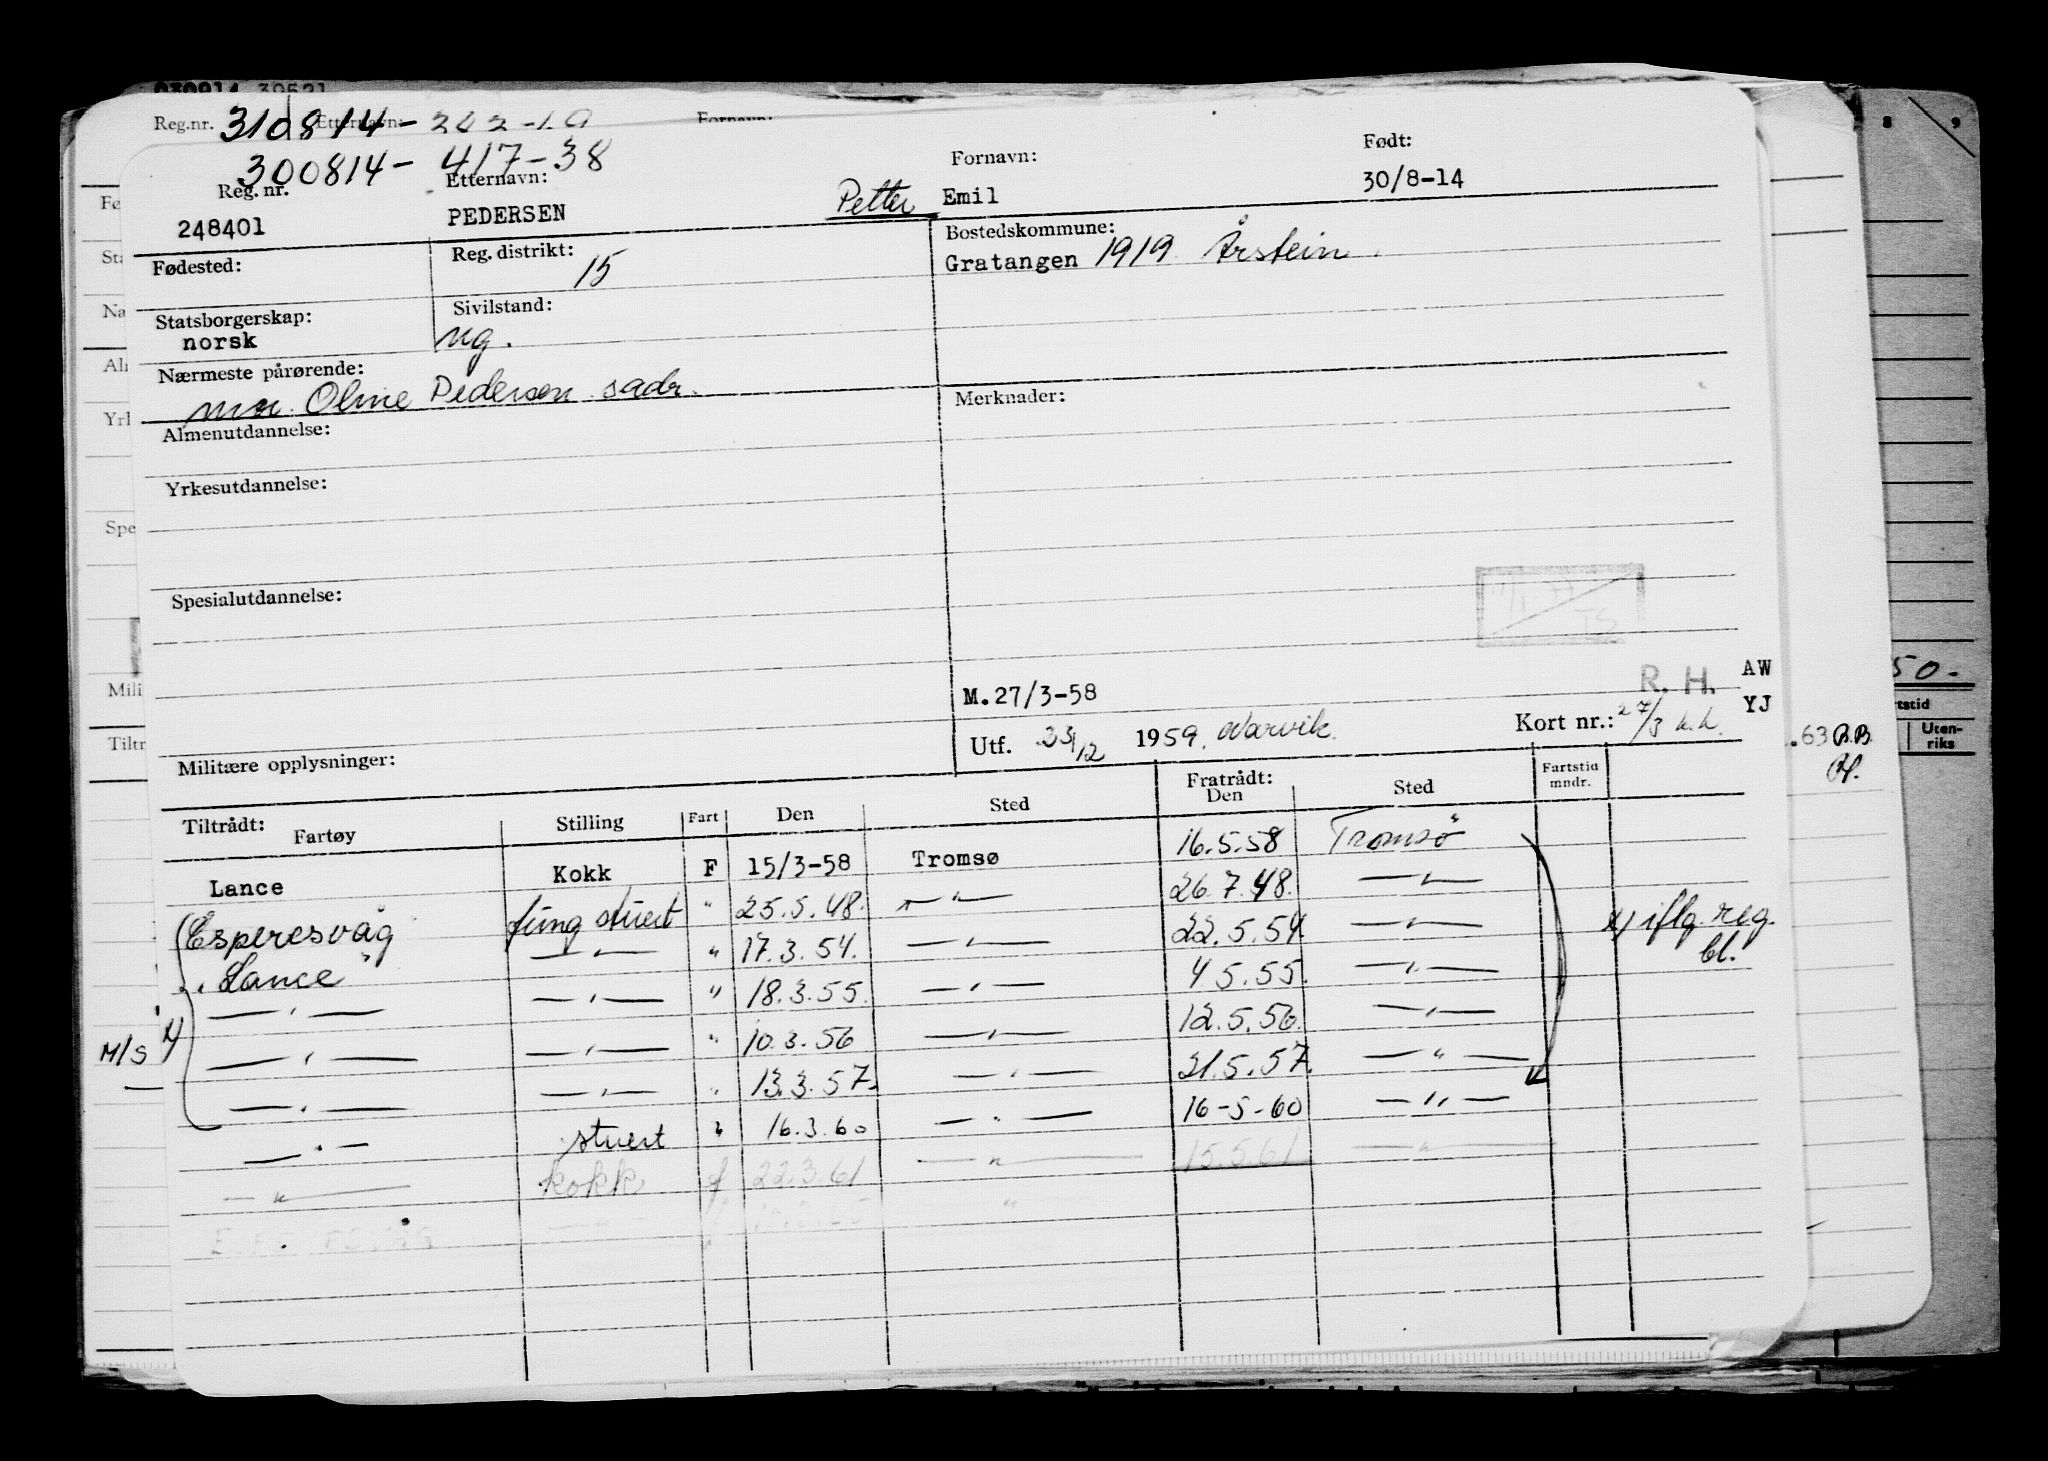 030914 39521
Reg.nr. 310814-
Etternavn:
Fornavn:
300814- 417-38
Reg. nr. Etternavn: Fornavn: Født:
248401 PEDERSEN Petter Emil 30/8-14
Fødested: Reg. distrikt: 15 Bostedskommune:
Gratangen 1919 Årstein
Statsborgerskap: Sivilstand:
norsk ug.
Nærmeste pårørende:
mor Oline Pedersen sadr.
Merknader:
Almenutdannelse:
Yrkesutdannelse:
Spesialutdannelse:
TS
M.27/3-58 R. H. AW
YJ
Utf. 23/12 1959. Narvik. Kort nr.: 27/3 h.h.
Militære opplysninger:
Tiltrådt: Fartøy Stilling Fart Den Sted Fratrådt: Den Sted Fartstid mndr.
Lance Kokk F 15/3-58 Tromsø 16.5.58 Tromsø
Esperesvåg fung stuert " 25.5.48. — " — 26.7.48. — " —
"Lance" — " — " 17.3.54. — " — 22.5.54. — " —
— " — — " — " 18.3.55. — " — 4 5.55. — " —
— " — — " — " 10.3.56 — " — 12.5.56. — " —
— " — — " — " 13.3.57. — " — 21.5.57. — " —
— " — stuert " 16.3.60 — " — 16-5-60 — " —
— " — kokk f. 22.3.61 — " — 15.5.61 — " —
x) iflg. reg.
bl.
x)
M/S
50.-
Uten-
riks
.63 B.B.
8 9